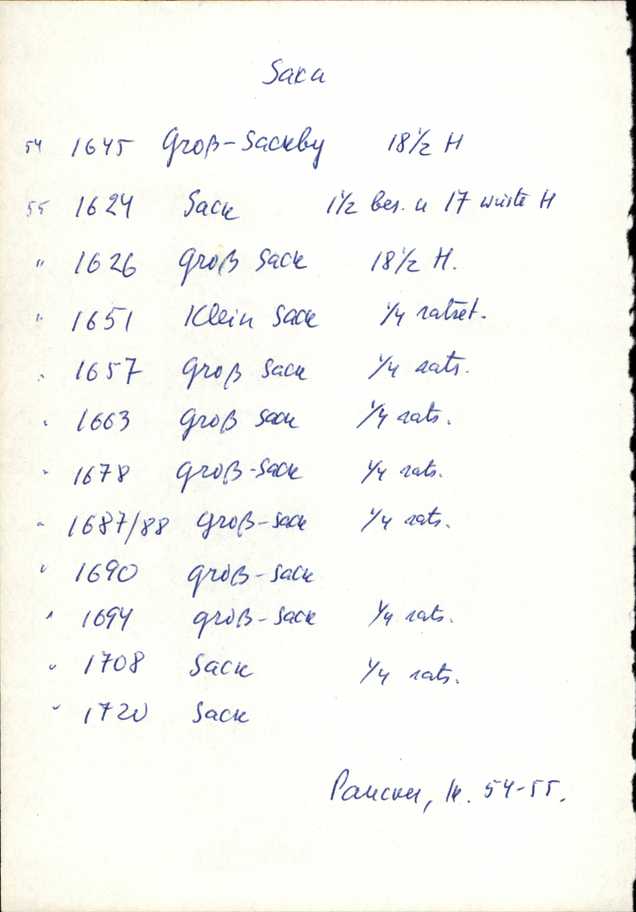 Saca
54 1645 Groß-Sackby 18 1/2 H
55 1624 Sack 1 1/2 bes. u 17 wüste H
" 1626 Groß Sack 18 1/2 H.
" 1651 Klein Sack 1/4 ratst.
" 1657 Groß Sack 1/4 rats.
" 1663 Groß Sack 1/4 rats.
" 1678 Groß-Sack 1/4 rats.
" 1687/88 Groß-Sack 1/4 rats.
" 1690 Groß-Sack
" 1694 Groß-Sack 1/4 rats.
" 1708 Sack 1/4 rats.
" 1720 Sack
54-55.